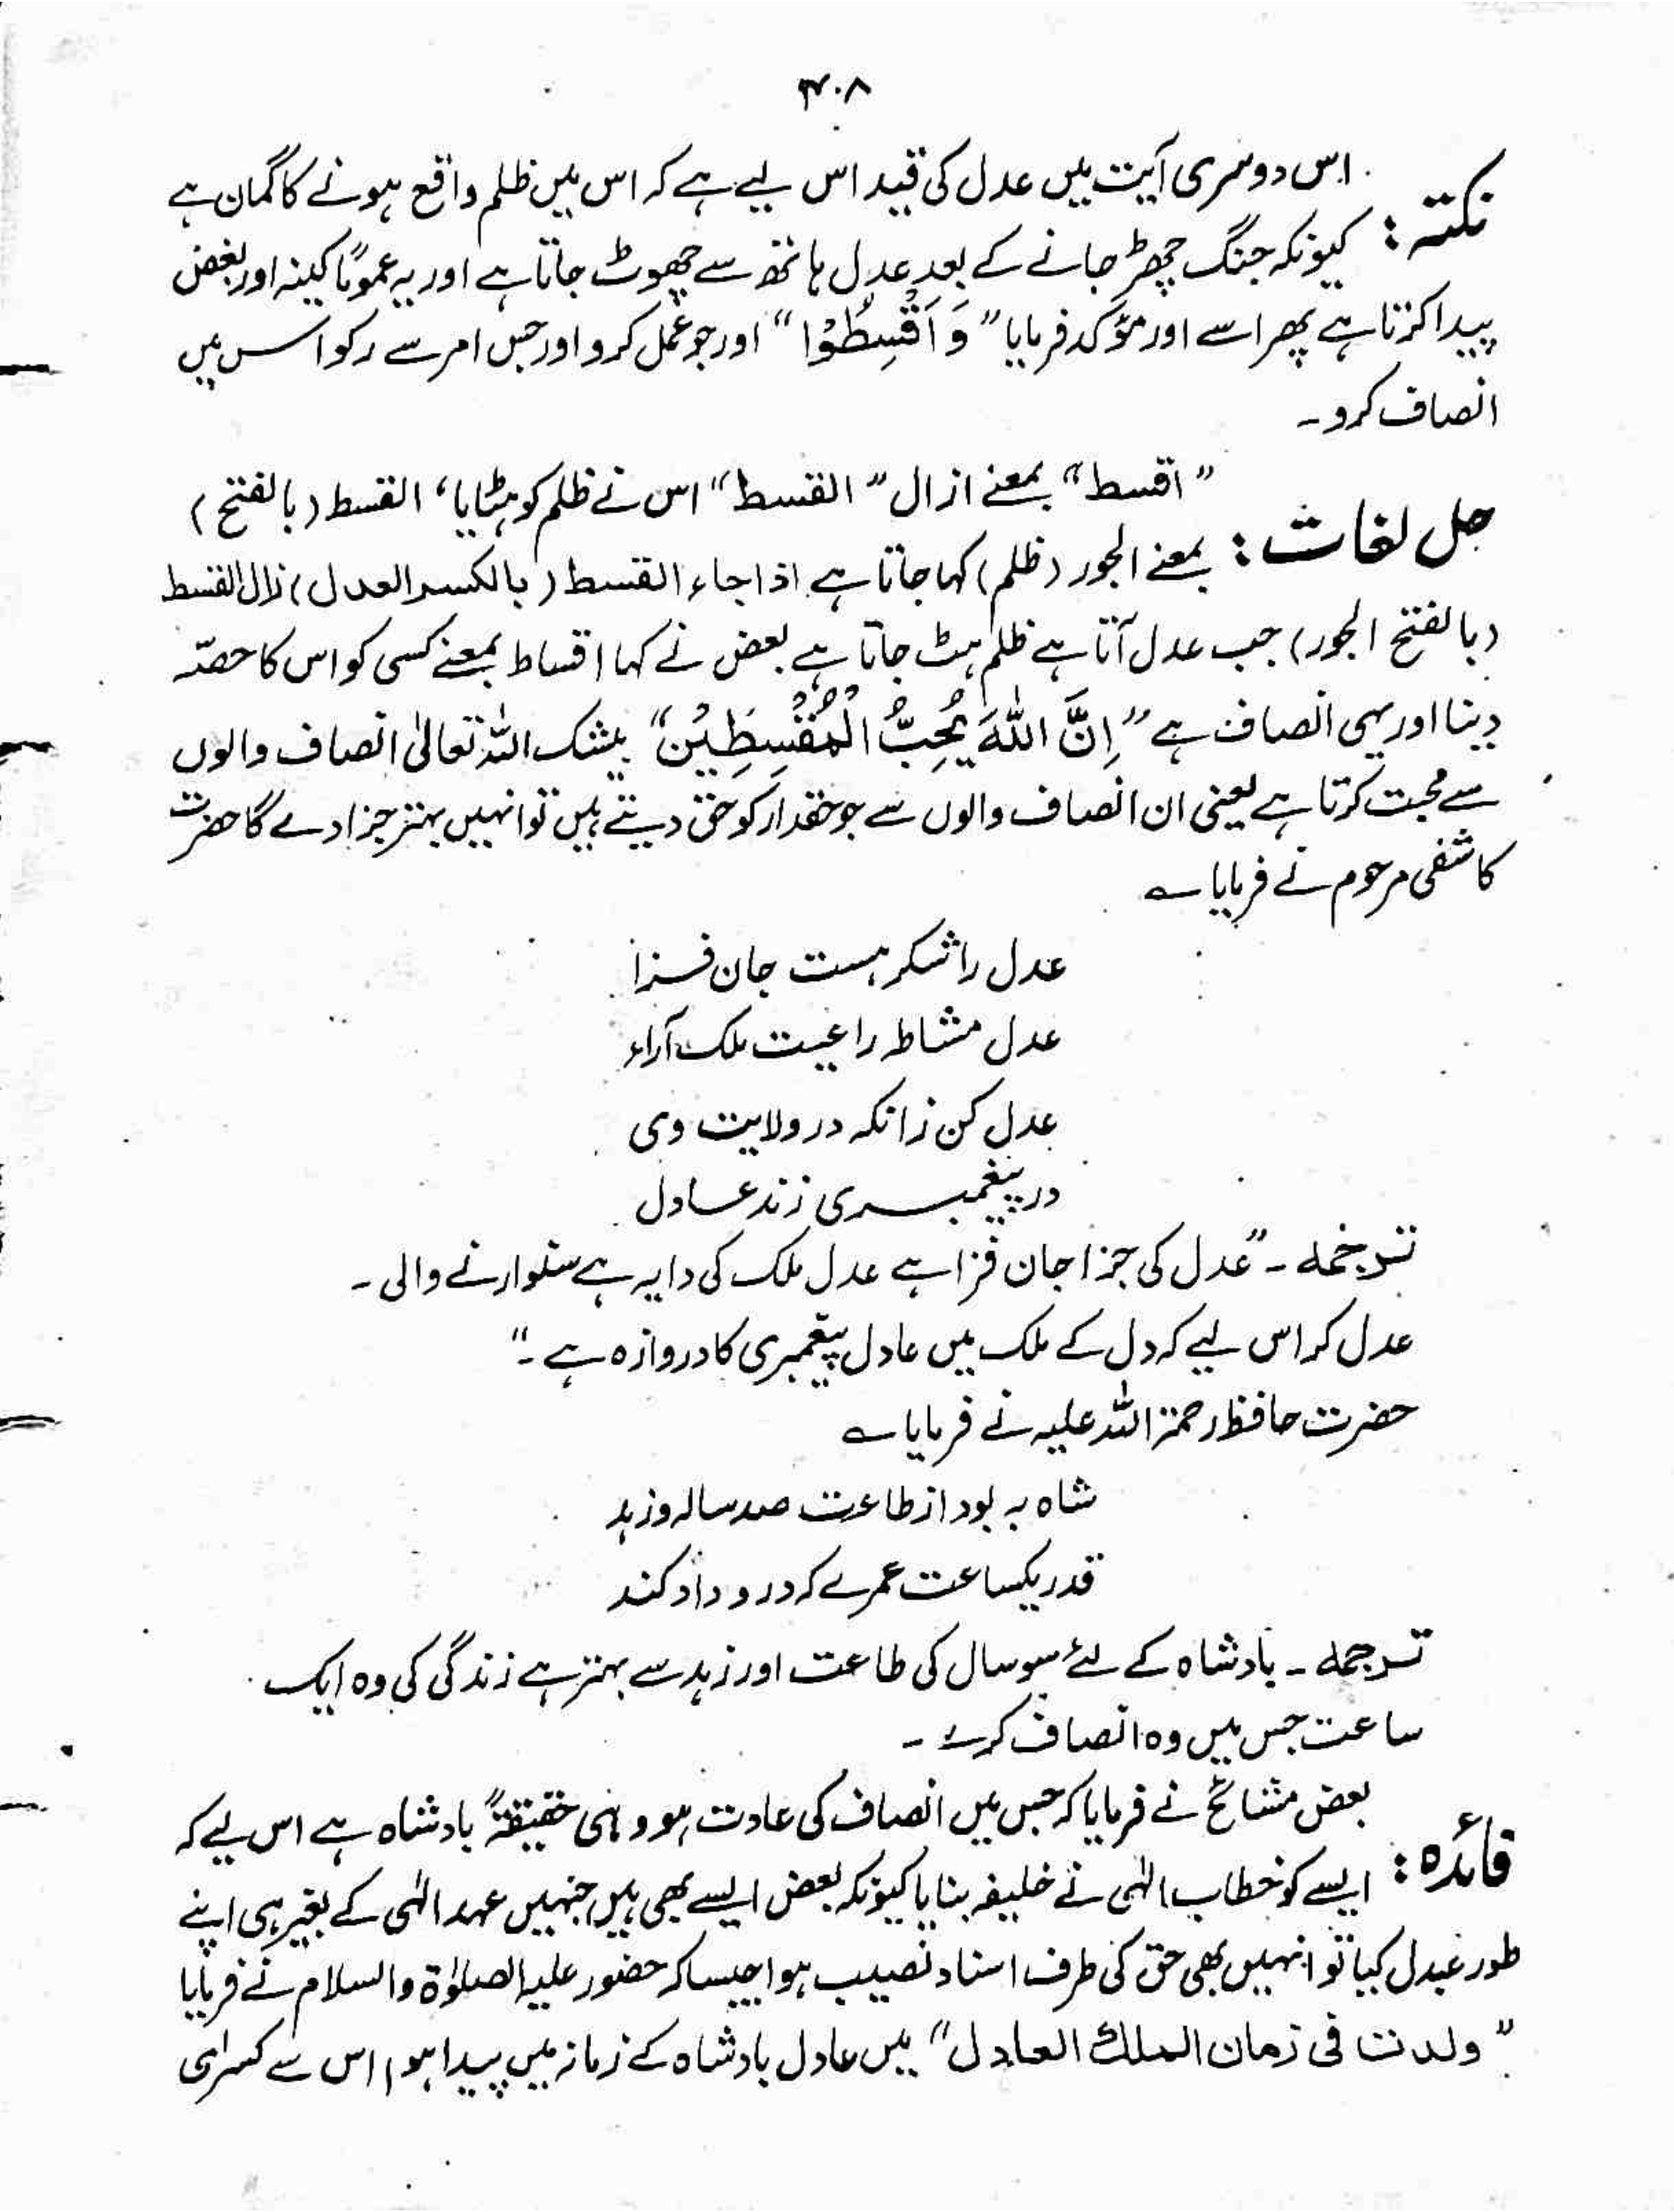 ۴۰۸
اس دوسری آیت میں عدل کی قید اس لیے ہے کہ اس میں ظلم واقع ہونے کا گمان ہے
نکتہ : کیونکہ جنگ چھڑ جانے کے بعد عدل ہاتھ سے چھوٹ جاتا ہے اور یہ عموماً کینہ اور بغض
پیدا کرتا ہے پھر اسے اور مؤکد فرمایا ” وَ اَقْسِطُوْا “ اور جو عمل کرو اور جس امر سے رکو اس میں
انصاف کرو ۔
” اقسط “ بمعنے ازال ” القسط “ اس نے ظلم کو ہٹایا ، القسط ( بالفتح )
حل لغات : بمعنے الجور ( ظلم ) کہا جاتا ہے اذا جاء القسط ( بالکسر العدل ) زال القسط
( بالفتح الجور ) جب عدل آتا ہے ظلم ہٹ جاتا ہے بعض نے کہا اقساط بمعنے کسی کو اس کا حصّہ
دینا اور یہی انصاف ہے ” اِنَّ اللّٰهَ يُحِبُّ الْمُقْسِطِيْنَ “ بیشک اللہ تعالیٰ انصاف والوں
سے محبت کرتا ہے یعنی ان انصاف والوں سے جو حقدار کو حق دیتے ہیں تو انہیں بہتر جزا دے گا حضرت
کاشفی مرحوم نے فرمایا ؎
عدل را شکر ہست جان فسزا
عدل مشاطہ راعیت ملک آراء
عدل کن زانکہ در ولایت وی
در پیغمبری زند عادل
ترجمہ ۔ ” عدل کی جزا جان فزا ہے عدل ملک کی دایہ ہے سنوارنے والی ۔
عدل کر اس لیے کہ دل کے ملک میں عادل پیغمبری کا دروازہ ہے ۔ “
حضرت حافظ رحمۃ اللہ علیہ نے فرمایا ؎
شاہ بہ بود از طاعت صد سالہ و زہد
قدر یکساعت عمرے کہ درو داد کند
ترجمہ ۔ بادشاہ کے لئے سو سال کی طاعت اور زہد سے بہتر ہے زندگی کی وہ ایک
ساعت جس میں وہ انصاف کرے ۔
بعض مشائخ نے فرمایا کہ جس میں انصاف کی عادت ہو وہی حقیقۃً بادشاہ ہے اس لیے کہ
فائدہ : ایسے کو خطاب الٰہی نے خلیفہ بنایا کیونکہ بعض ایسے بھی ہیں جنہیں عہد الٰہی کے بغیر ہی اپنے
طور عدل کیا تو انہیں بھی حق کی طرف اسناد نصیب ہوا جیسا کہ حضور علیہ الصلوٰۃ والسلام نے فرمایا
” ولدت فی زمان الملك العادل “ میں عادل بادشاہ کے زمانہ میں پیدا ہوا اس سے کسرای